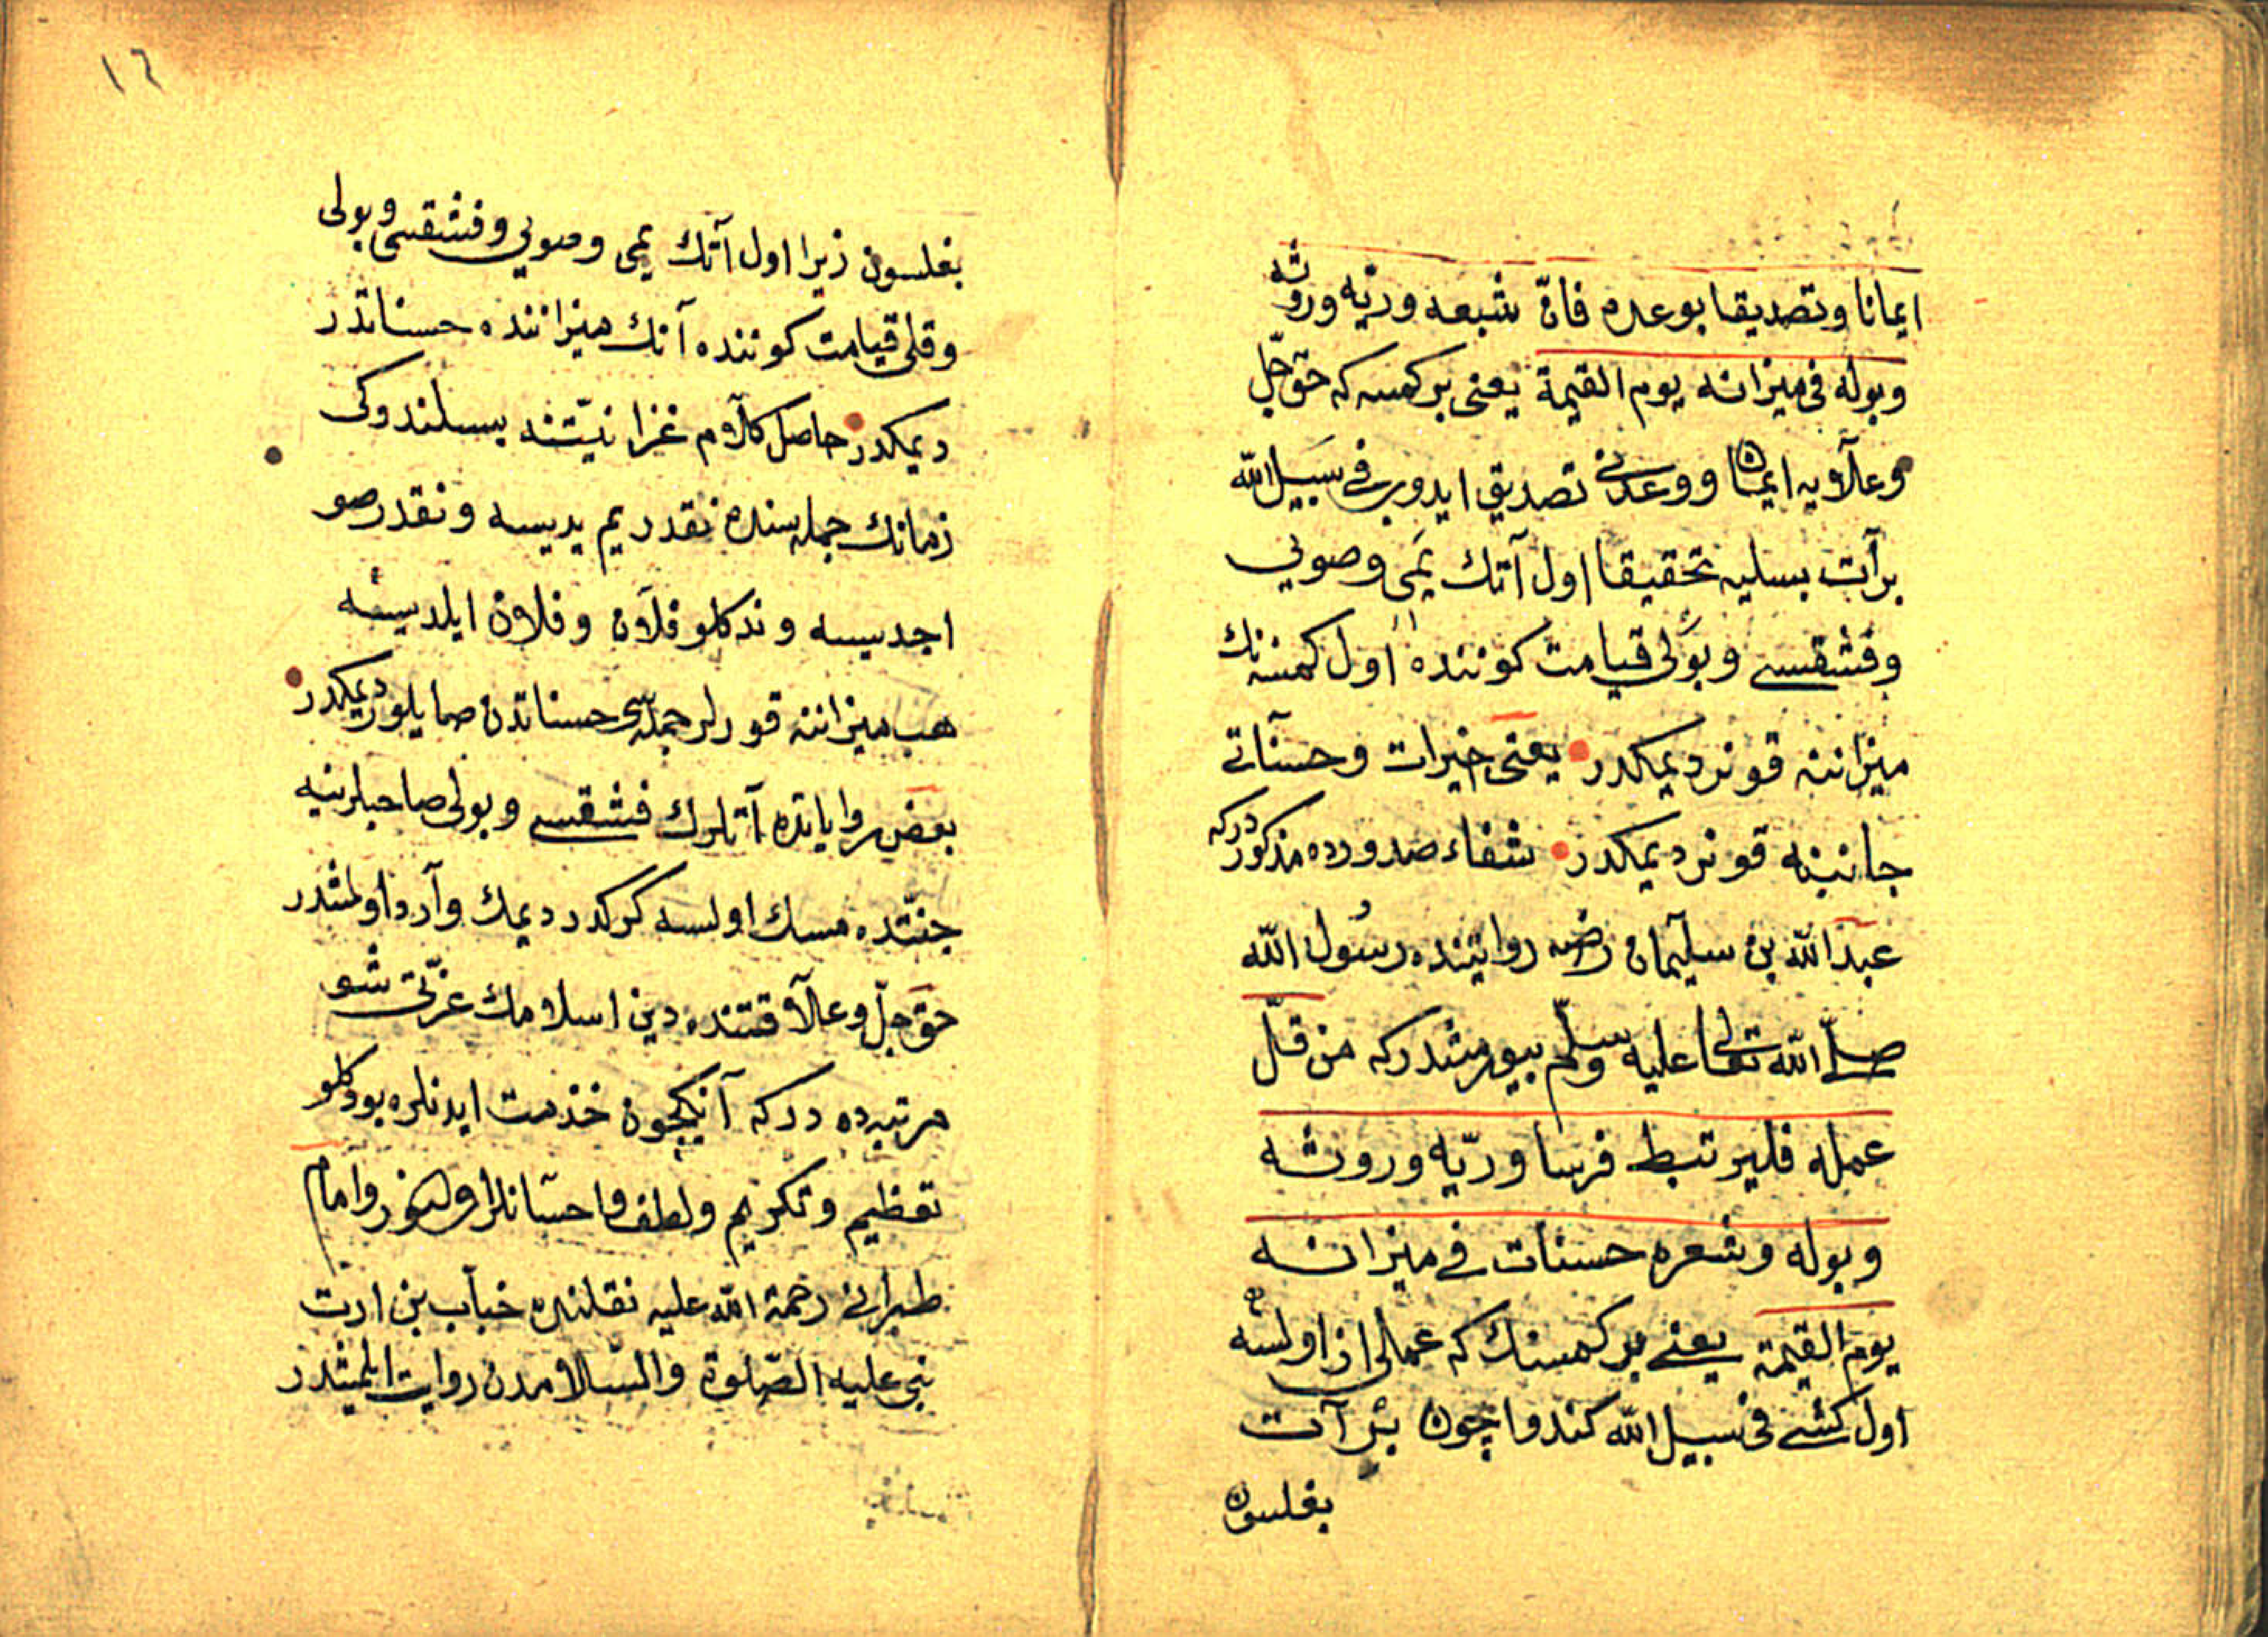 ايمانا وتصديقا بوعده فانّ شبعه وريّه وروثه
وبوله فى ميزانه يوم القيمة يعنى بر كمسه كه حق جلّ
وعلآويه ايمان ووعدنى تصديق ايدوب فى سبيل الله
بر آت بسليه تحقيقا اول آتك يمى وصويى
وفشقسى وبولى قيامت كوننده اول كمسنه نك
ميزاننه قونر ديمكدر يعنى خيرات وحسناتى
جانبنه قونر ديمكدر شفاء صدورده مذكوردركه
عبد الله بن سليمان رضه روايتنده رسول الله
صلّى الله تعالى عليه وسلّم بيورمشدركه من قلّ
عمله فليرتبط فرسا وريّه وروثه
وبوله وشعره حسنات فى ميزانه
يوم القيمة يعنى بر كمسنك كه عملى از اولسه
اول كشى فى سبيل الله كندو اچون بر آت
بغلسون
١٦
بغلسون زيرا اول آتك يمى وصويى وفشقسى وبولى
وقلى قيامت كوننده آنك ميزاننده حسناتدر
ديمكدر حاصل كلام غزا نيّتنه بسلندوكى
زمانك جمله سنده نقدر يم يديسه ونقدر صو
اجديسه وندكلو فلان وفلان ايلديسه
هب ميزاننه قورلر جمله سى حسناتدن صايلور ديمكدر
بعض رواياتده آتلرك فشقسى وبولى صاحبلرينه
جنّتده مسك اولسه كركدر ديمك وآرد اولمشدر
حق جلّ وعلآ قتنده دين اسلامك عزّتى شو
مرتبه ده دركه آنكچون خذمت ايدنلره بودكلو
تعظيم وتكريم ولطف واحسانلر اولنور وامام
طبرانى رحمة الله عليه نقلنده خبآب بن ارت
نبى عليه الصّلوة والسّلامدن روايت ايلمشدر